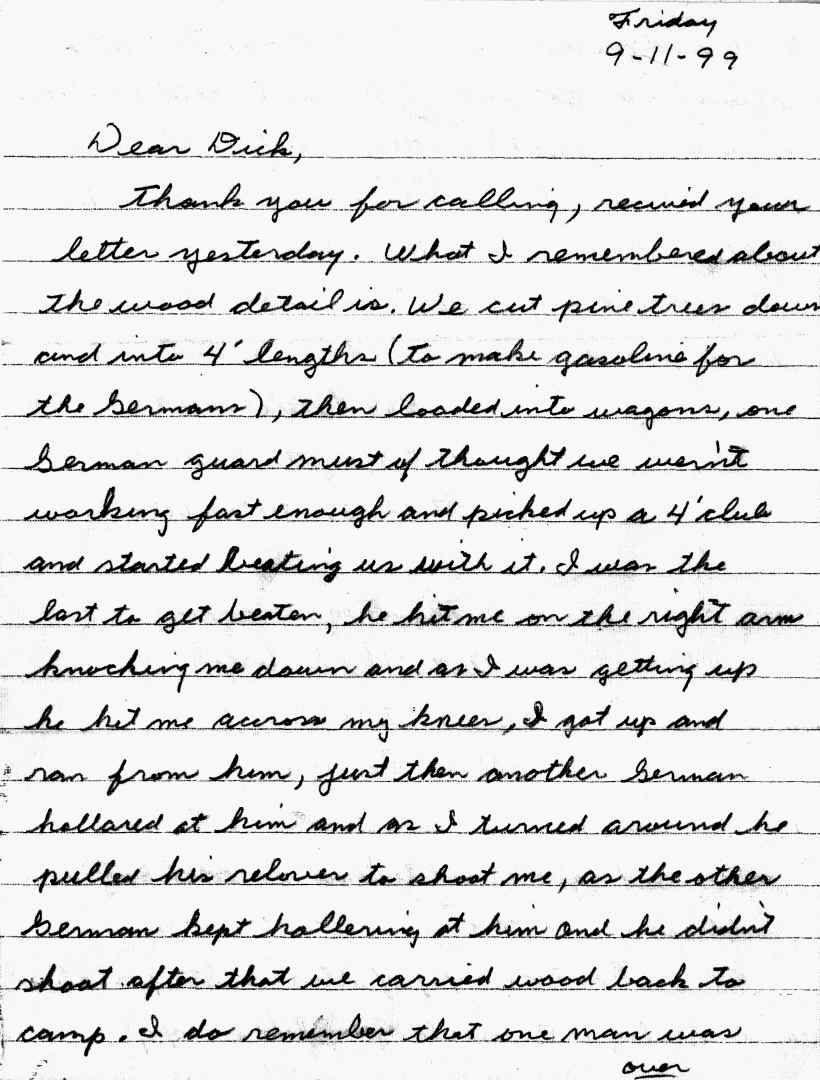 Friday
9-11-99
Dear Dick,
Thank you for calling, recuied your
letter yesterday. What I remembered about
the wood detail is. We cut pine trees down
and into 4' lengths (to make gasoline for
the Germans), then loaded into wagons, one
German guard must of thought we wern't
working fast enough and picked up a 4' club
and started beating us with it. I was the
last to get beaten, he hit me on the right arm
knocking me down and as I was getting up
he hit me accross my knees, I got up and
ran from him, just then another German
hollared at him and as I turned around he
pulled his relover to shoot me, as the other
German kept hollering at him and he didn't
shoot after that we carried wood back to
camp. I do remember that one man was
over